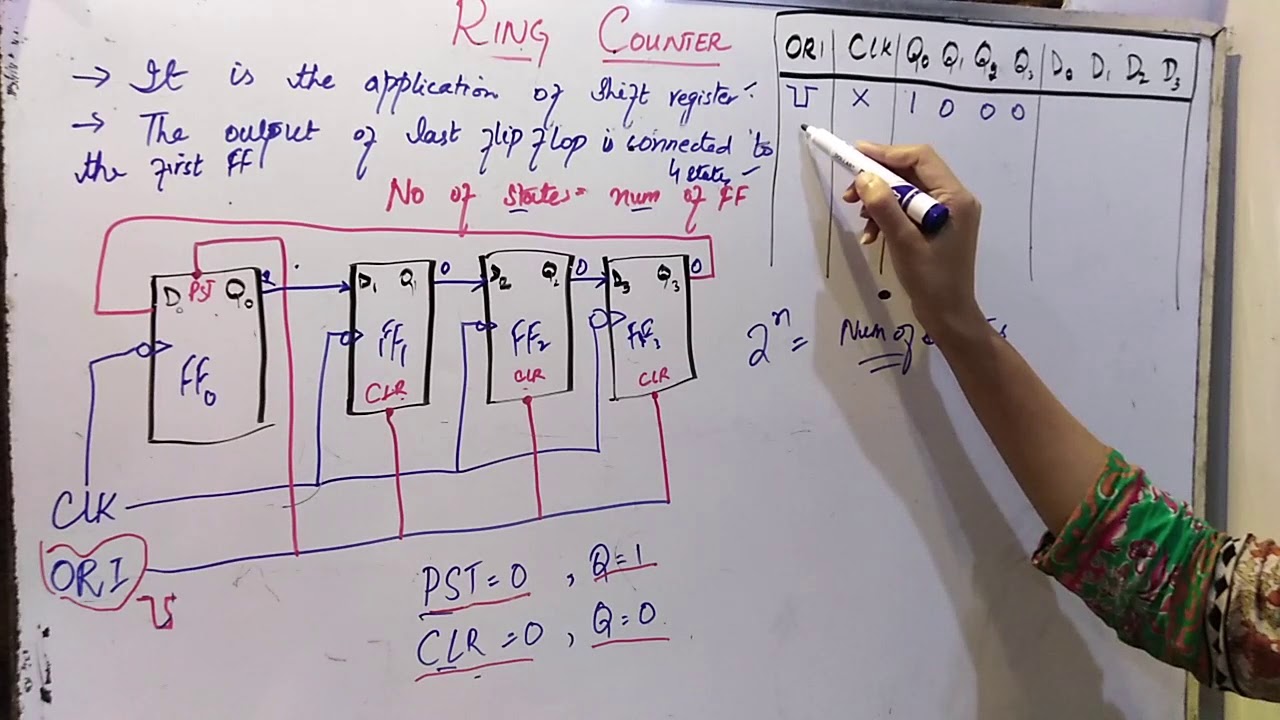 RING COUNTER
→ It is the application of shift register:-
→ The output of last flip flop is connected to
the first FF
4 states
No of states = num of FF
ORI CLK Q0 Q1 Q2 Q3 D0 D1 D2 D3
X 1 0 0 0
D0 PST Q0
FF0
D1 Q1 0
FF1
CLR
D2 Q2 0
FF2
CLR
D3 Q3 0
FF3
CLR
2^n = Num of
CLK
ORI
PST = 0 , Q = 1
CLR = 0 , Q = 0